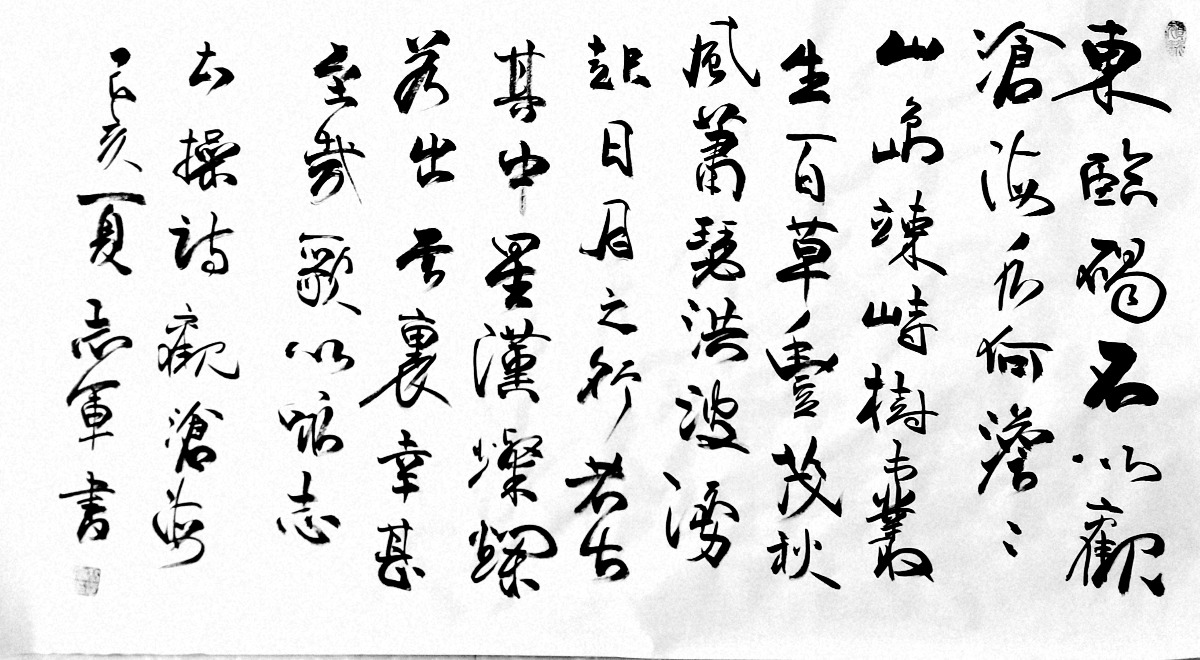 東臨碣石以觀
滄海水何澹〻
山島竦峙樹木叢
生百草豐茂秋
風蕭瑟洪波湧
起日月之行若出
其中星漢燦爛
若出其裏幸甚
至哉歌以詠志
右操詩觀滄海
己亥夏志軍書